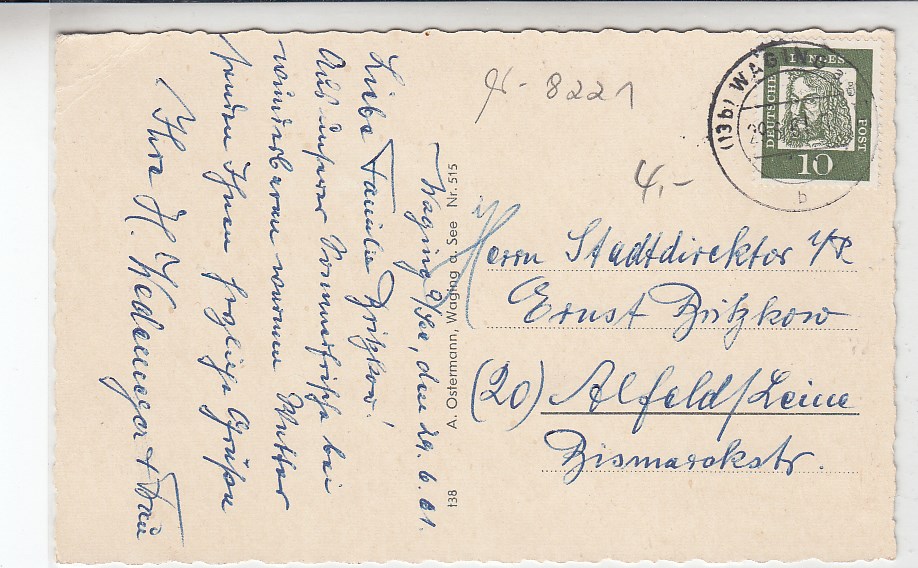 Waging a/See, den 29.6.61.
Liebe Familie Britzkow!
Aus unserer Sommerfrische bei
wunderbarem warmen Wetter
senden Ihnen herzliche Grüßen
Ihre H. Wedemeyer + Frau
138 A. Ostermann, Waging a. See Nr. 515
8221
4,-
(13b) WAGING
b
DEUTSCHE BUNDESPOST
10
Herrn Stadtdirektor i/R
Ernst Britzkow
(20) Alfeld/Leine
Bismarckstr.